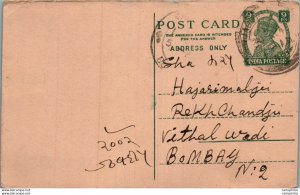 POST CARD
THE ANNEXED CARD IS INTENDED
FOR THE ANSWER
ADDRESS ONLY
9
9
INDIA POSTAGE
Sha
Hajarimalji
Rekhchandji
Vithal wadi
BOMBAY
N: 2
२००२